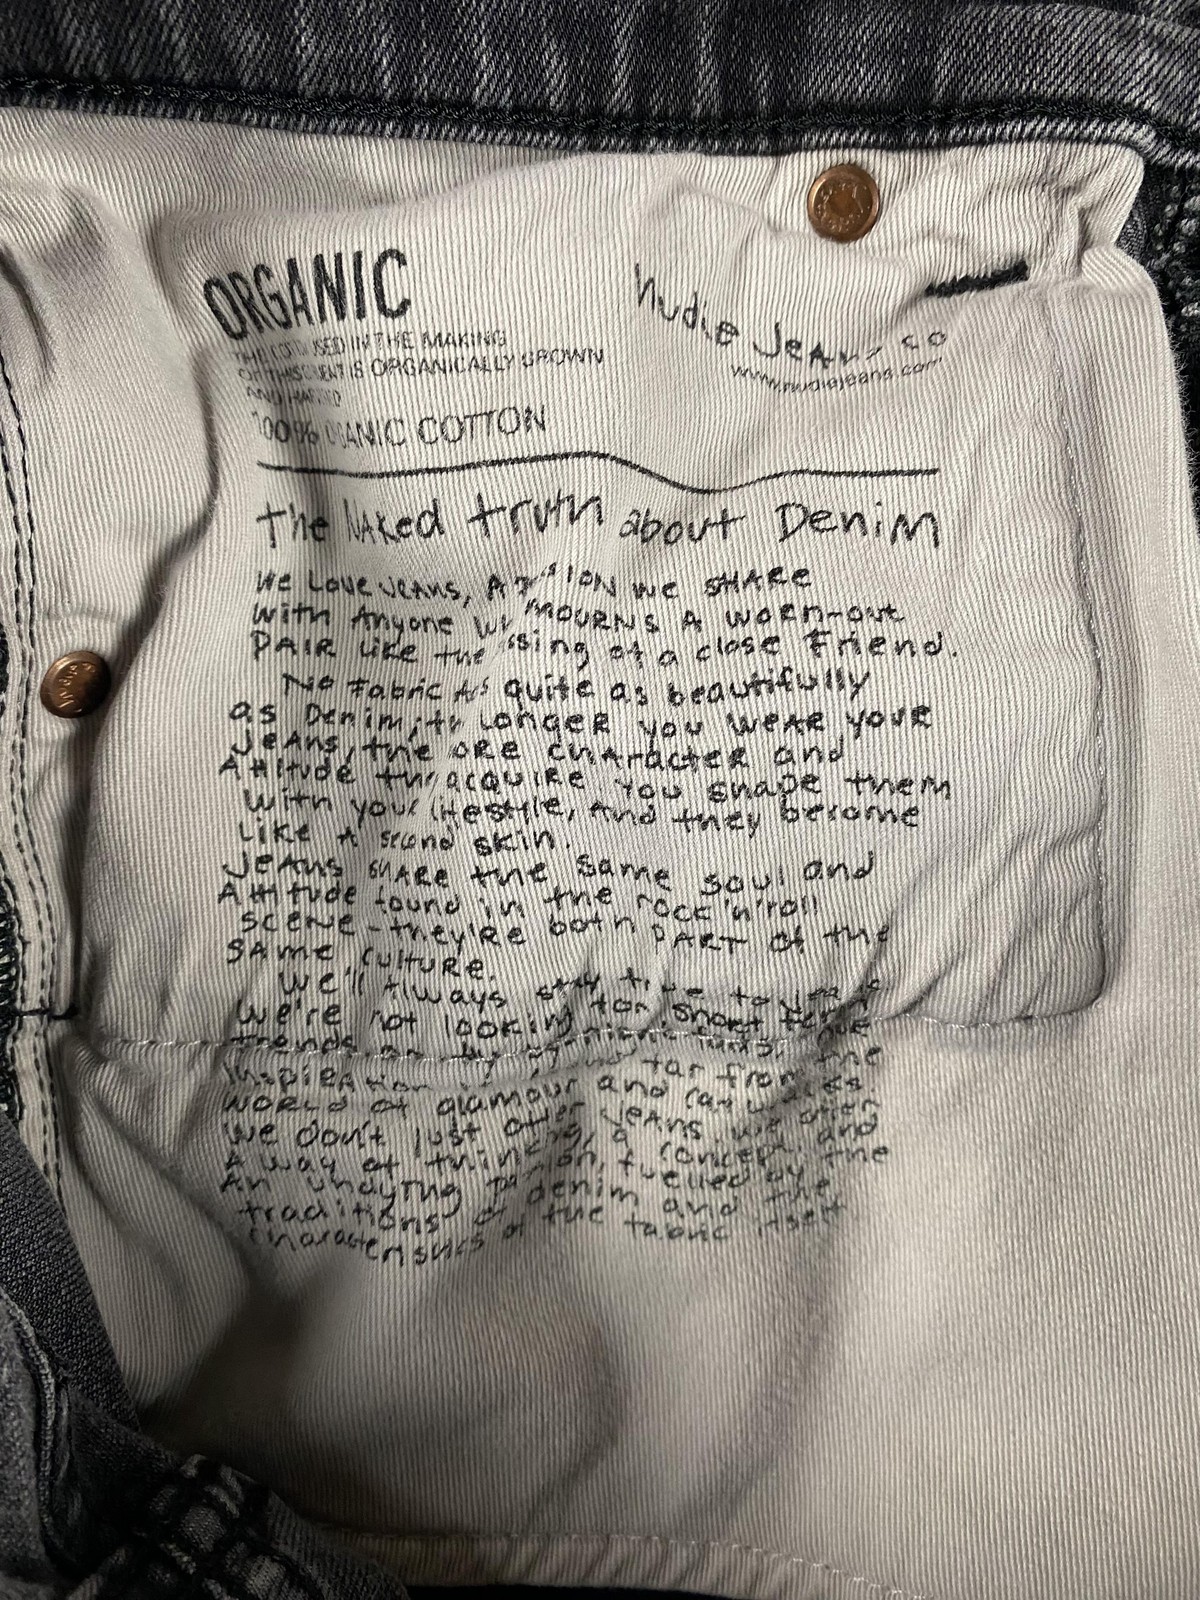 ORGANIC
IN THE MAKING
IS ORGANICALLY GROWN
AND
100% COTTON
Nudie Jeans co
www.nudiejeans.com
The NAKed truth about Denim
We Love JeANs, A we SHARe
with Anyone MOURNS A WORN-out
PAIR Like the of a close Friend.
No Fabric quite as beautifully
as Denim; LongeR you WeAR youR
JeAns, the chARacteR and
Attitude acquiRe. You shape them
with your Lifestyle, And they become
Like A second skin.
JeAns SHARe the same soul and
Attitude found in the rock'n'roll
scene-they'Re both PART of the
sAme culture.
We'll Always stay true to
We're not looking for short term
trends or
Inspiration far from the
WORLD of glamour and
We don't just offer JeANs, we offer
A way of thinking, a concept, and
An undying fuelled by the
traditions of denim and the
characteristics of the fabric itself